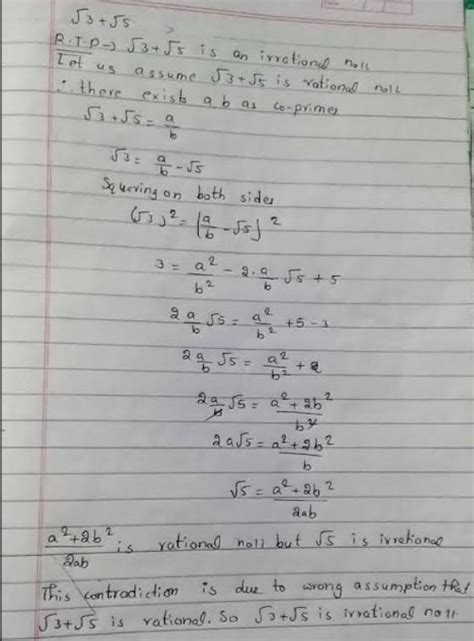 √3+√5
R.T.P→ √3+√5 is an irrational no||
Let us assume √3+√5 is rational no||
∴ there exists a b as co-primes
√3+√5 = a/b
√3 = a/b - √5
Squering on both sides
(√3)² = (a/b - √5)²
3 = a²/b² - 2·a/b √5 + 5
2 a/b √5 = a²/b² + 5 - 3
2 a/b √5 = a²/b² + 2
2a/b √5 = a²+2b²/b²
2a√5 = a²+2b²/b
√5 = a²+2b²/2ab
a²+2b²/2ab is rational no|| but √5 is irrational
This contradiction is due to wrong assumption that
√3+√5 is rational. So √3+√5 is irrational no||